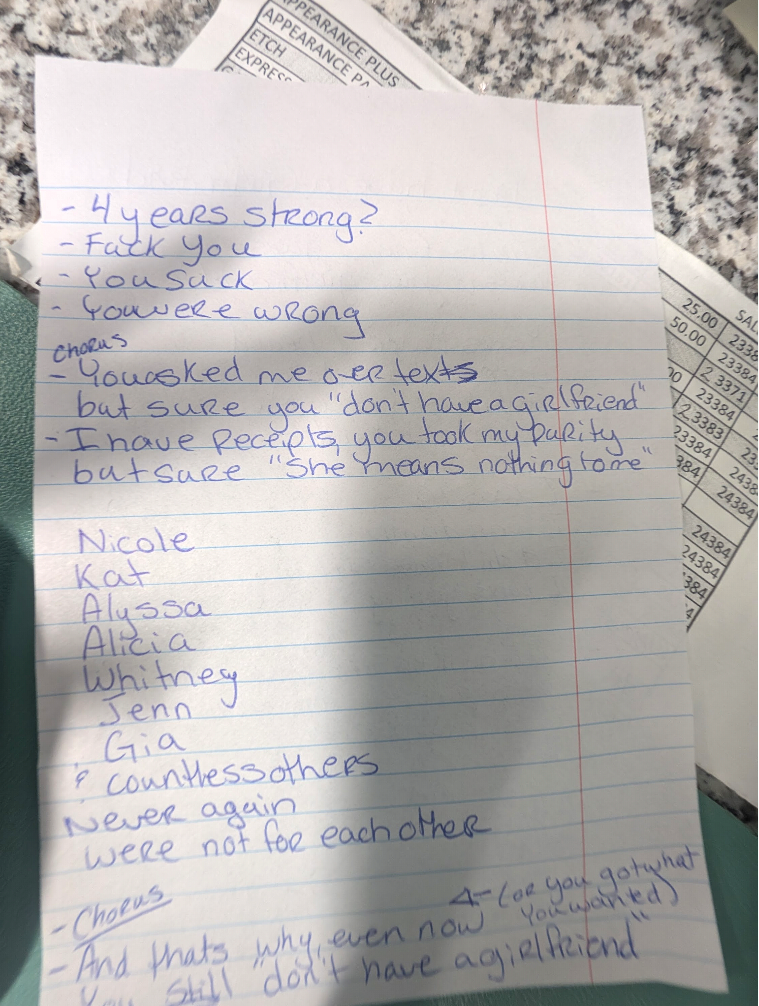 APPEARANCE PLUS
APPEARANCE
ETCH
EXPRESS
- 4 years strong?
- Fuck You
- You suck
- You were wrong
Chorus
- You asked me over texts
but sure you "don't have a girlfriend"
- I have Receipts, you took my purity
but sure "she means nothing to me"
Nicole
Kat
Alyssa
Alicia
Whitney
Jenn
Gia
& countless others
Never again
were not for each other
- Chorus
(or you got what
you wanted)
- And thats why, even now
You still "don't have a girlfriend"
25.00
50.00
23384
2 3371
23384
23383
23384
24384
24384
24384